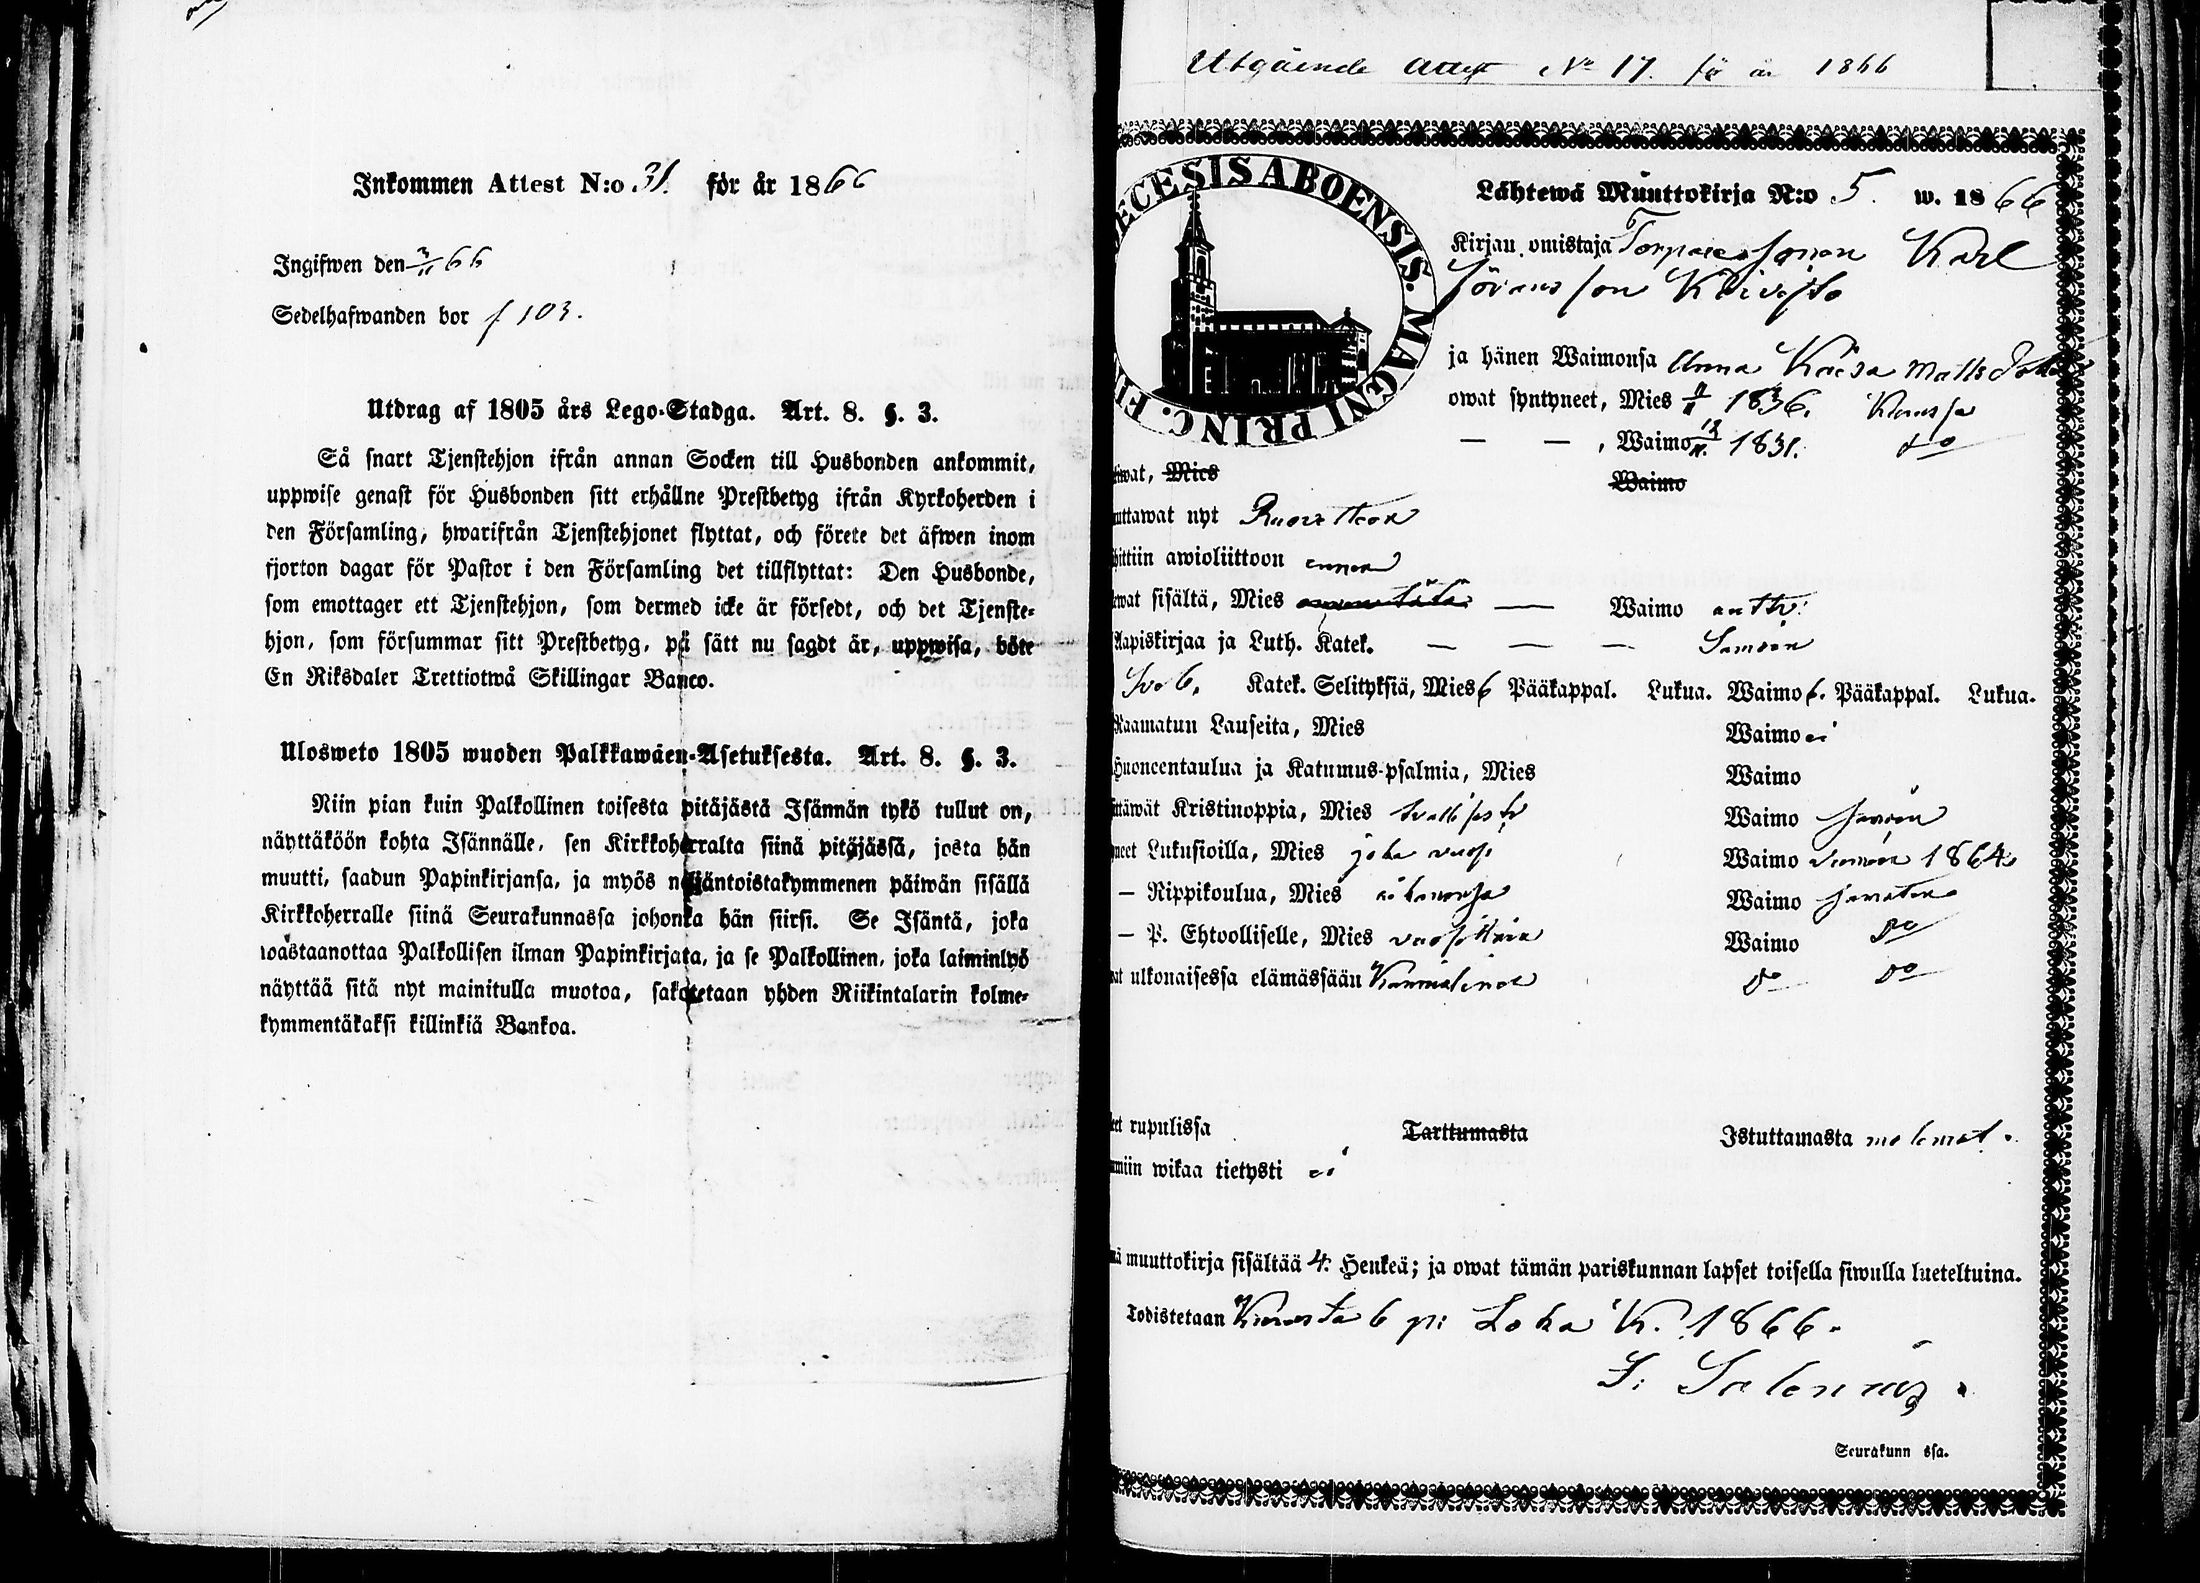 Inkommen Attest N:o 31. för år 1866
Ingifwen den 3/11 66
Sedelhafwanden bor f 103.
Utdrag af 1805 års Lego-Stadga. Art. 8. §. 3.
Så snart Tjenstehjon ifrån annan Socken till Husbonden ankommit,
uppwise genast för Husbonden sitt erhållne Prestbetyg ifrån Kyrkoherden i
den Församling, hwarifrån Tjenstehjonet flyttat, och förete det äfwen inom
fjorton dagar för Pastor i den Församling det tillflyttat: Den Husbonde,
som emottager ett Tjenstehjon, som dermed icke är försedt, och det Tjenste-
hjon, som försummar sitt Prestbetyg, på sätt nu sagdt är, uppwisa, böte
En Riksdaler Trettiotwå Skillingar Banco.
Ulosweto 1805 wuoden Palkkawäen-Asetuksesta. Art. 8. §. 3.
Niin pian kuin Palkollinen toisesta pitäjästä Isännän tykö tullut on,
näyttäköön kohta Isännälle, sen Kirkkoherralta siinä pitäjässä, josta hän
muutti, saadun Papinkirjansa, ja myös neljäntoistakymmenen päiwän sisällä
Kirkkoherralle siinä Seurakunnassa johonka hän siirsi. Se Isäntä, joka
wastaanottaa Palkollisen ilman Papinkirjata, ja se Palkollinen, joka laiminlyö
näyttää sitä nyt mainitulla muotoa, sakotetaan yhden Riikintalarin kolme-
kymmentäkaksi killinkiä Bankoa.
Utgående Attest No 17. för år 1866
ECESIS ABOENSIS. MAGNI PRINC. FI
Lähtewä Muuttokirja N:o 5. w. 1866
Kirjan omistaja Torparesonen Karl
Göransson Koivisto
ja hänen Waimonsa Anna Kaisa Matts Dotter
owat syntyneet, Mies 1836.
— — , Waimo 1831. do
wat, Mies Waimo
uttawat nyt
hittiin awioliittoon ennen
ewat sisältä, Mies — Waimo
Aapiskirjaa ja Luth. Katek. — — — Samoin
Sveb. Katek. Selityksiä, Mies 6 Pääkappal. Lukua. Waimo 6. Pääkappal. Lukua.
Raamatun Lauseita, Mies Waimo ei
Huoneentaulua ja Katumus-psalmia, Mies Waimo
ttäwät Kristinoppia, Mies Waimo samoin
neet Lukusioilla, Mies joka vuosi Waimo samoin 1864
— Rippikoulua, Mies Waimo
— P. Ehtoolliselle, Mies vuosittain Waimo Do
at ulkonaisessa elämässään Kunnialiset Do Do
eet rupulissa Tarttumasta Istuttamasta molemat.
miin wikaa tietysti ei
mä muuttokirja sisältää 4. Henkeä; ja owat tämän pariskunnan lapset toisella siwulla lueteltuina.
Todistetaan 6 p: Loka K. 1866.
Seurakunn ssa.